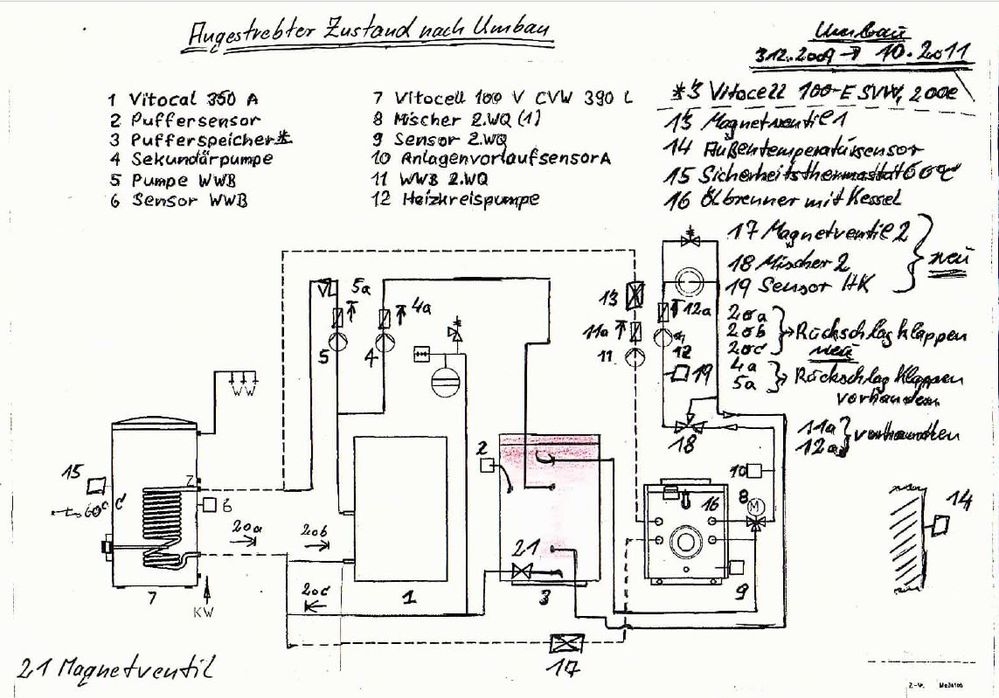 Angestrebter Zustand nach Umbau
Umbau
3.12.2009 → 10.2011
1 Vitocal 350 A
2 Puffersensor
3 Pufferspeicher*
4 Sekundärpumpe
5 Pumpe WWB
6 Sensor WWB
7 Vitocell 100 V CVW 390 L
8 Mischer 2.WQ (1)
9 Sensor 2.WQ
10 Anlagenvorlaufsensor A
11 WWB 2.WQ
12 Heizkreispumpe
*3 Vitocell 100-E SVW, 200e
13 Magnetventil 1
14 Außentemperatursensor
15 Sicherheitsthermostat 60°C
16 Ölbrenner mit Kessel
17 Magnetventil 2
18 Mischer 2
19 Sensor HK
neu
20a
20b
20c
Rückschlagklappen
neu
4a
5a
Rückschlagklappen
vorhanden
11a
12a
vorhanden
5a
4a
13
12a
11a
5
4
11
12
19
WW
18
2
10
15
60°C
7
6
8
M
16
14
20a
20b
21
20c
1
3
9
7
KW
17
21 Magnetventil